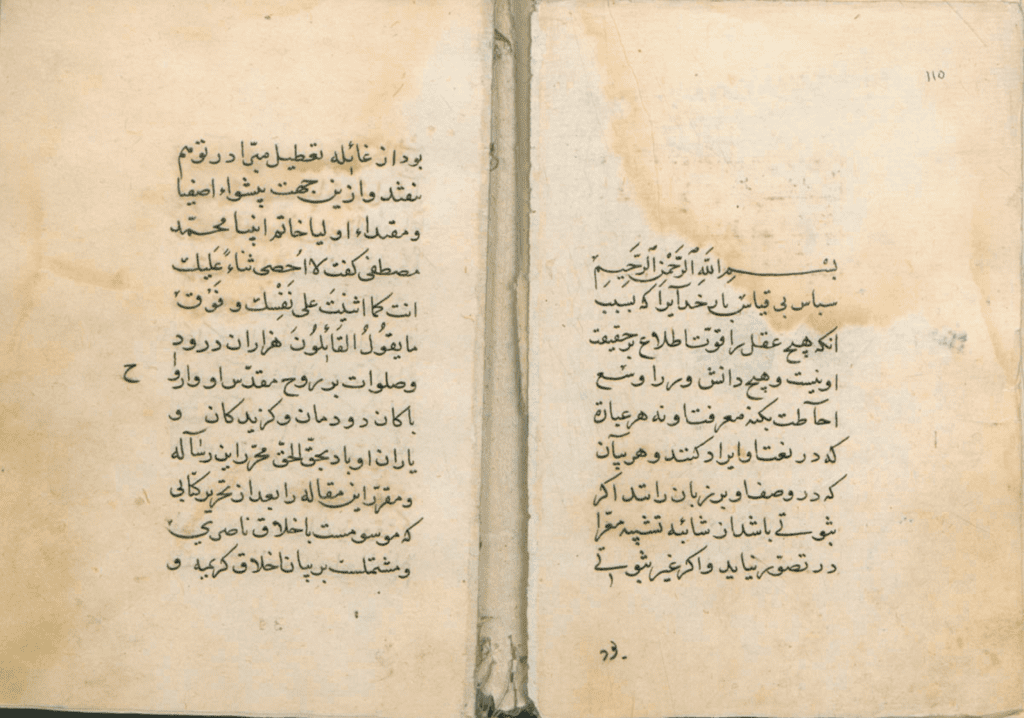 ١١٥
بسم الله الرَّحْمٰنِ الرَّحِيمِ
سباس بی قیاس بار خدایرا که بسبب
انکه هیچ عقل را قوت اطلاع بر حقیقت
او نیست و هیچ دانش ور را وسع
احاطت بکنه معرفت او نه هر عبارة
که در نعت او ایراد کنند و هر بیان
که در وصف او بر زبان رانند اکر
ثبوتے باشد از شائبه تشبیه معرّا
در تصوّر نیاید و اکر غیر ثبوتے
بود از غائله تعطیل مبرّا در توهم
نیفتد و ازین جهت پیشواء اصفیا
و مقتداء اولیا خاتم انبیا محمّد
مصطفی کفت لا اُحصی ثناءً عَلَیك
انت کما اثنیتَ علی نَفْسِك و فَوْقَ
ما یقُولُ القَائِلُونَ هزاران درود
و صلوات بر روح مقدّس او و ارواح
باکان دودمان و کزیدکان و
یاران او باد بحقّ الحقّ محرّر این رساله
و مقرّر این مقاله را بعد از تحریر کتابی
که موسومست باخلاق ناصری
و مشتملست بر بیان اخلاق کریمه و